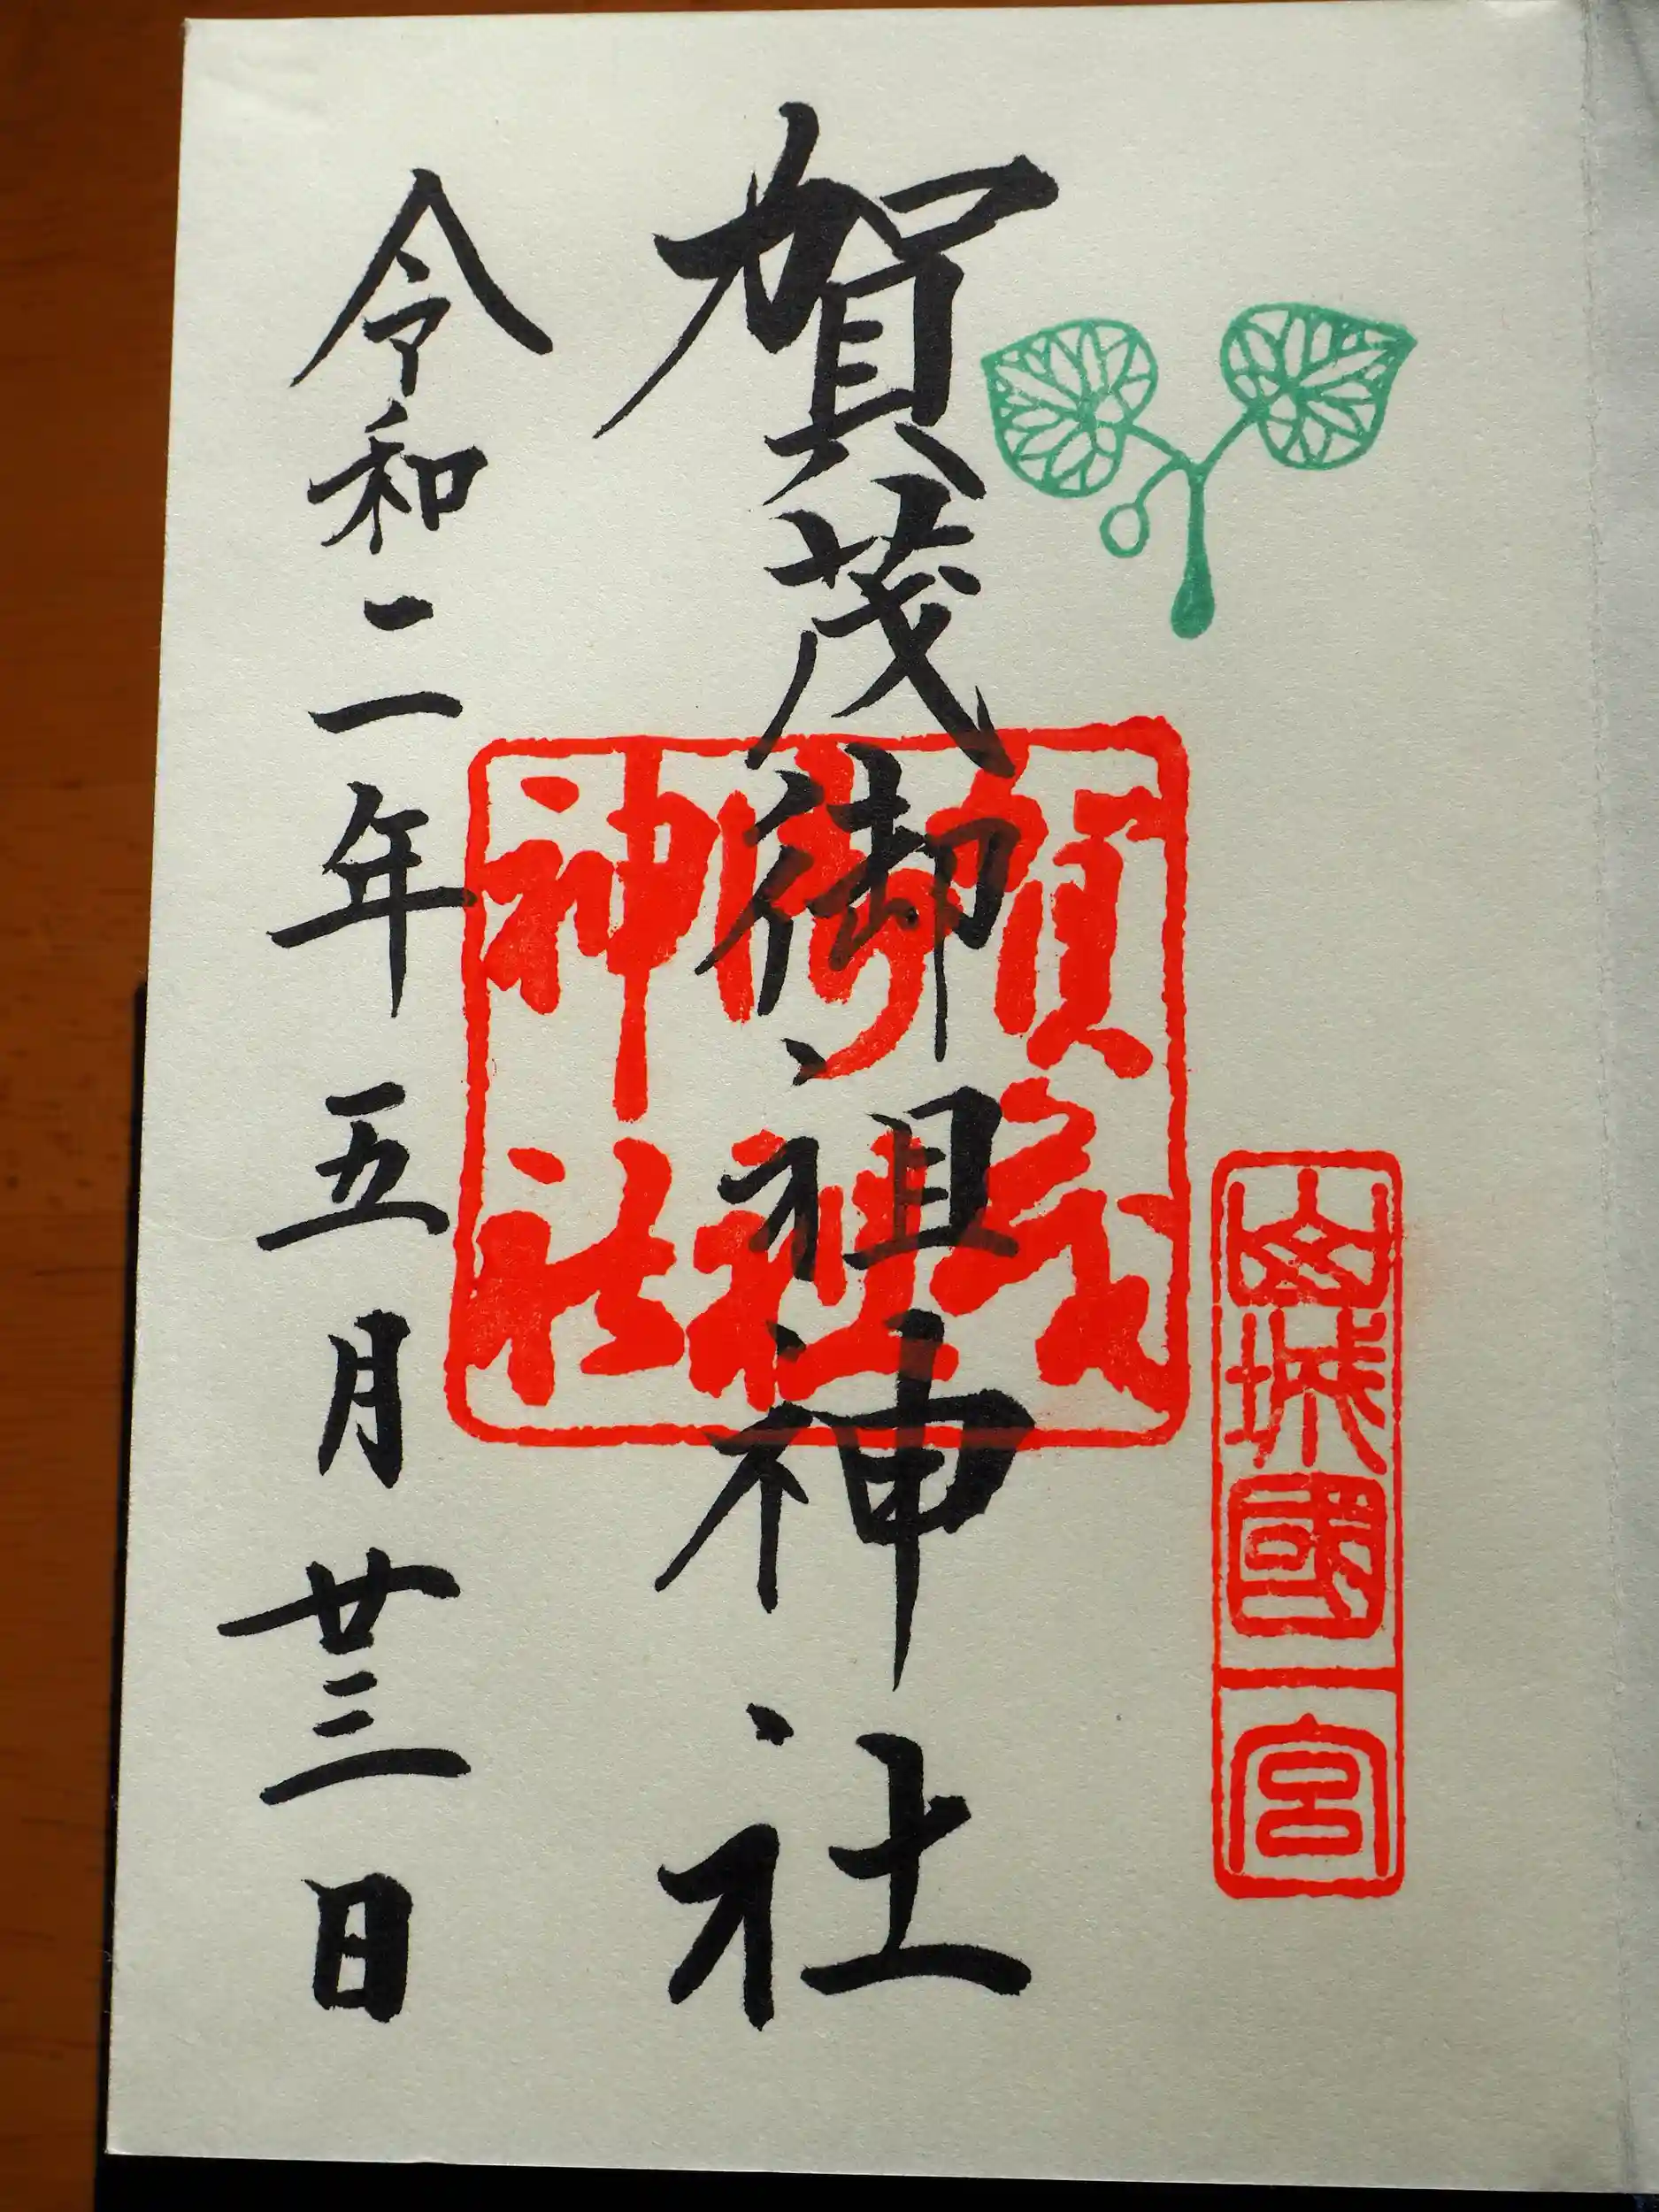 山城國一宮
賀茂御祖神社
賀茂
御祖
神社
令和二年五月廿三日